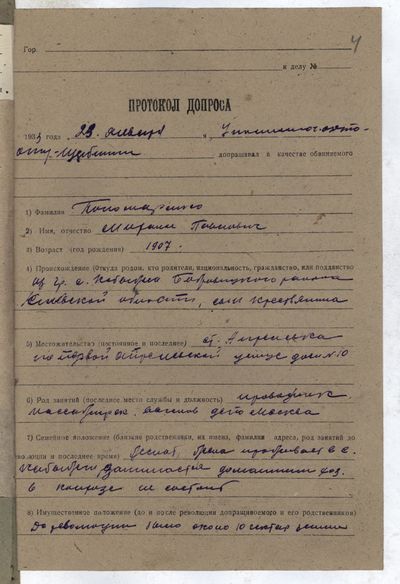 4
Гор.
к делу №
ПРОТОКОЛ ДОПРОСА
193 года 23 января я
допрашивал в качестве обвиняемого
1) Фамилия Пономаренко
2) Имя, отчество Михаил Павлович
3) Возраст (год рождения) 1907.
4) Происхождение (Откуда родом, кто родители, национальность, гражданство, или подданство
из гр. с. района
Киевской области, сын крестьянина
5) Местожительство (постоянное и последнее) ст.
по первой улице дом №10
6) Род занятий (последнее место службы и должность) проводник
вагонов депо Москва
7) Семейное положение (близкие родственники, их имена, фамилии адреса, род занятий до
революции и последнее время) проживает в с.
занимается домашним хоз.
в колхозе не состоит
8) Имущественное положение (до и после революции допрашиваемого и его родственников)
До революции было около 10 гектар земли